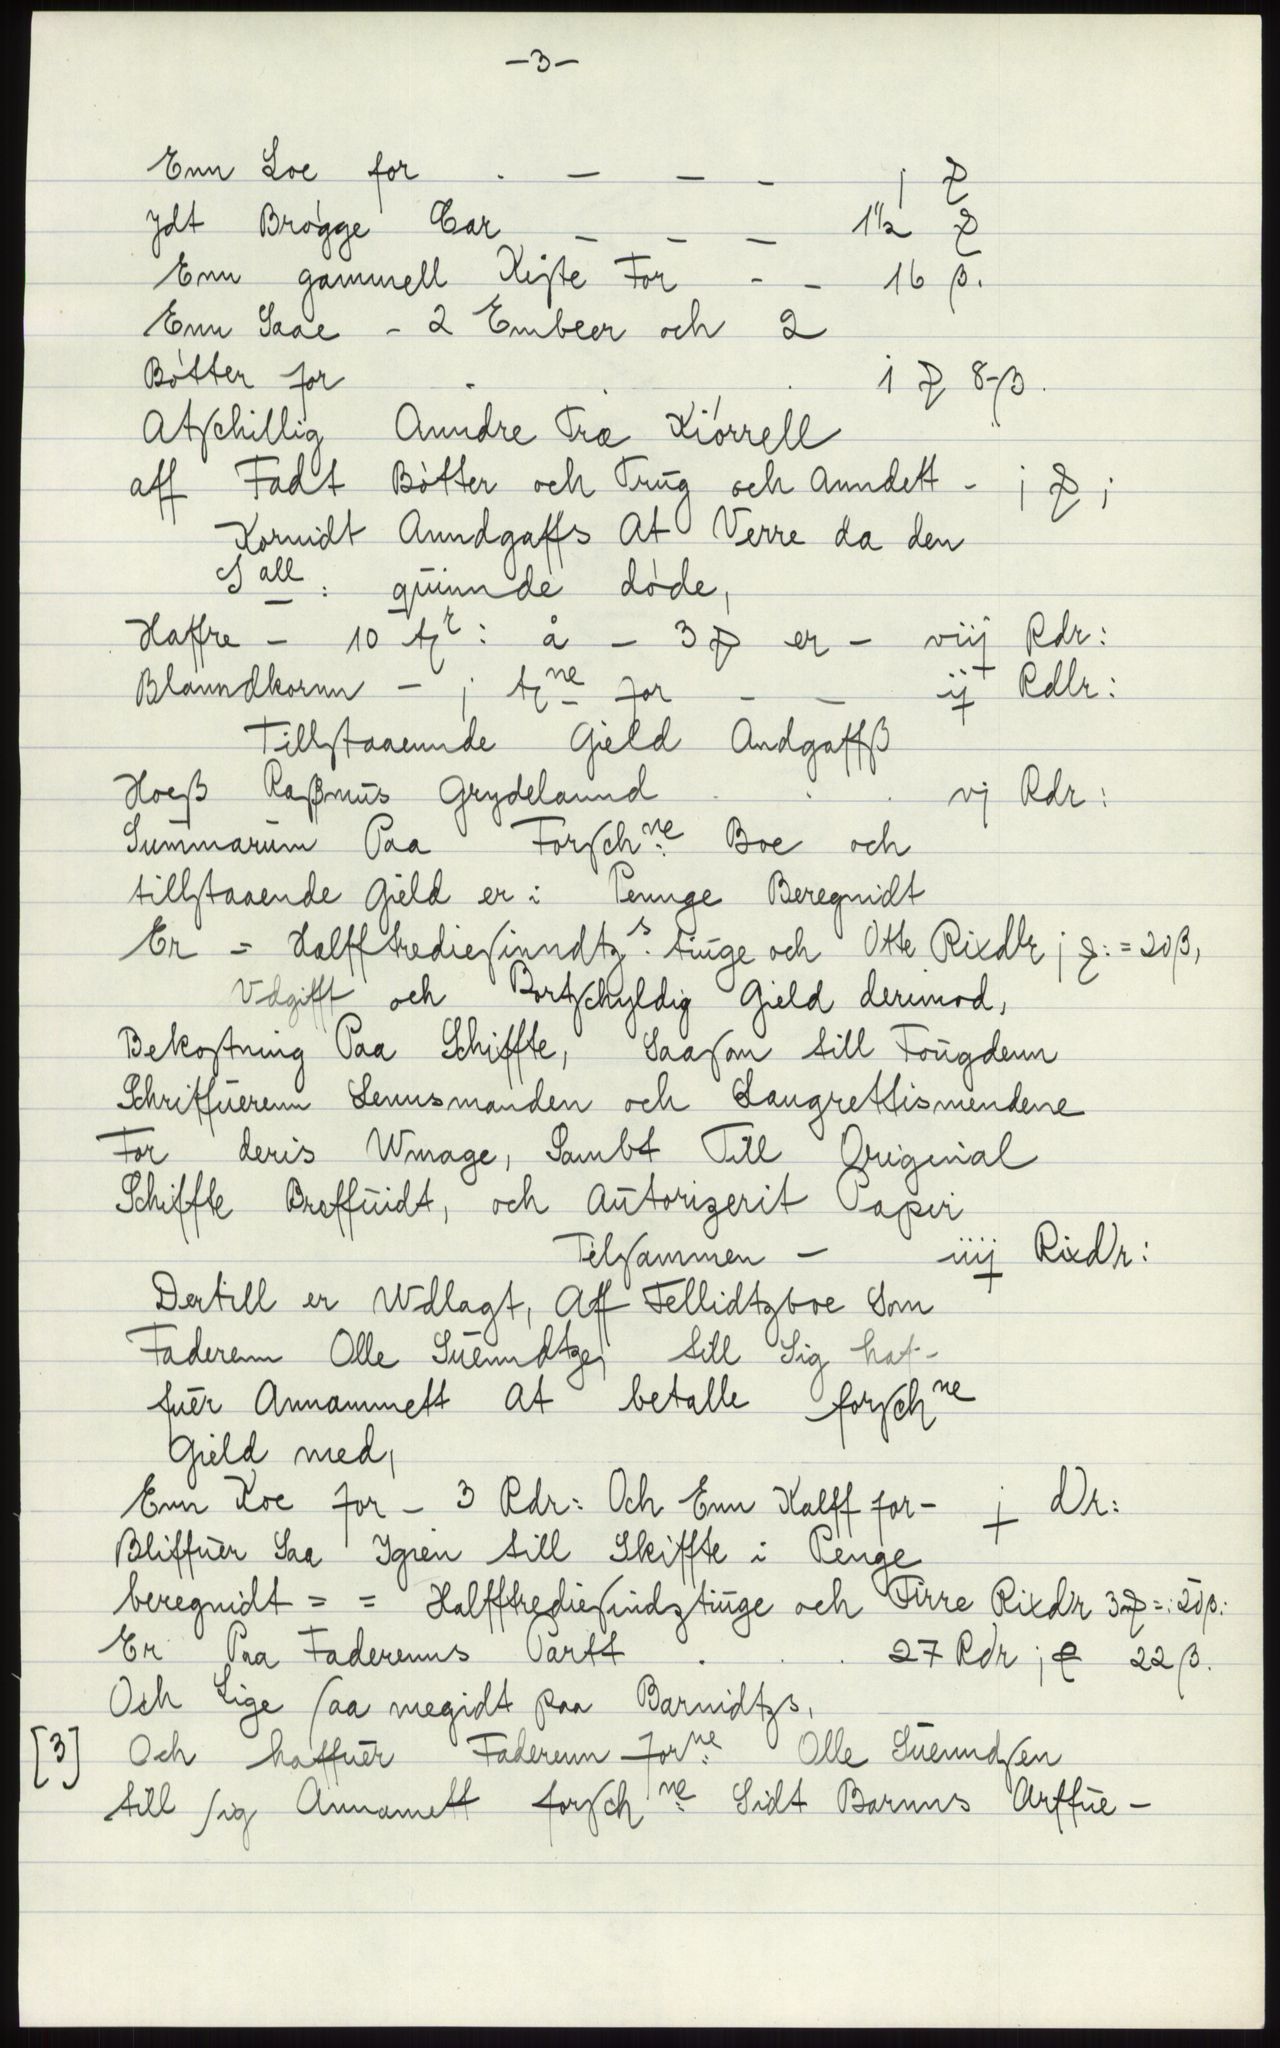 -3-
Enn Loe for . - - - j ₰
ydt Brøgge Car - - - 1½ ₰
Enn gammell Kiste For - - 16 β.
Enn Saae - 2 Embeer och 2
Bøtter for - . . 1 ₰ 8-β.
Atschillig Anndre Træ Kiørrell
aff Fadt Bøtter och Trüg och Anndett - j ₰ ;
Kornidt Anndgaffs At Verre da den
Sall: quinnde døde,
Haffre - 10 tr: å - 3 ₰ er - viij Rdr:
Blanndkornn - j tne for - - ij Rdlr:
Tillstaaennde Gield Andgaffß
Hoeß Raßmüs Grydelannd . . . vj Rdr:
Summarüm Paa Forschne: Boe och
tillstaaende Gield er i Pennge Beregnidt
Er = Halfftrediesinndtzs. tiüge och Otte Rixdlr j ₰: = 20β,
Vdgifft och Bortschyldig Gield derimod,
Bekostning Paa Schiffte, Saasom till Foügdenn
Schriffüerenn Lennsmanden och Laugrettismendene
For deris Wmage, Sambt Till Original
Schiffte Breffüidt, och Aütorizerit Papir
Tilsammen - iiij Rixdlr:
Dertill er Wdlagt, Aff Fellidtzboe Som
Faderenn Olle Süenndtze, till Sig haf-
füer Annammett At betalle forschne
Gield med,
Enn Koe for - 3 Rdr: Och Enn Kalff for - j dlr:
Bliffüer Saa Igien till Skiffte i Penge
beregnidt = = Halfftrediesindztiüge och Firre Rixdlr 3₰ =: 20β:
Er Paa Faderenns Partt . . . 27 Rdr j ₰ 22 β.
Och Lige saa megidt paa Barnidtzs,
[3] Och haffüer Faderenn forne: Olle Süenndsen
till sig Annamett forschne: Sidt Barnns Arffüe-